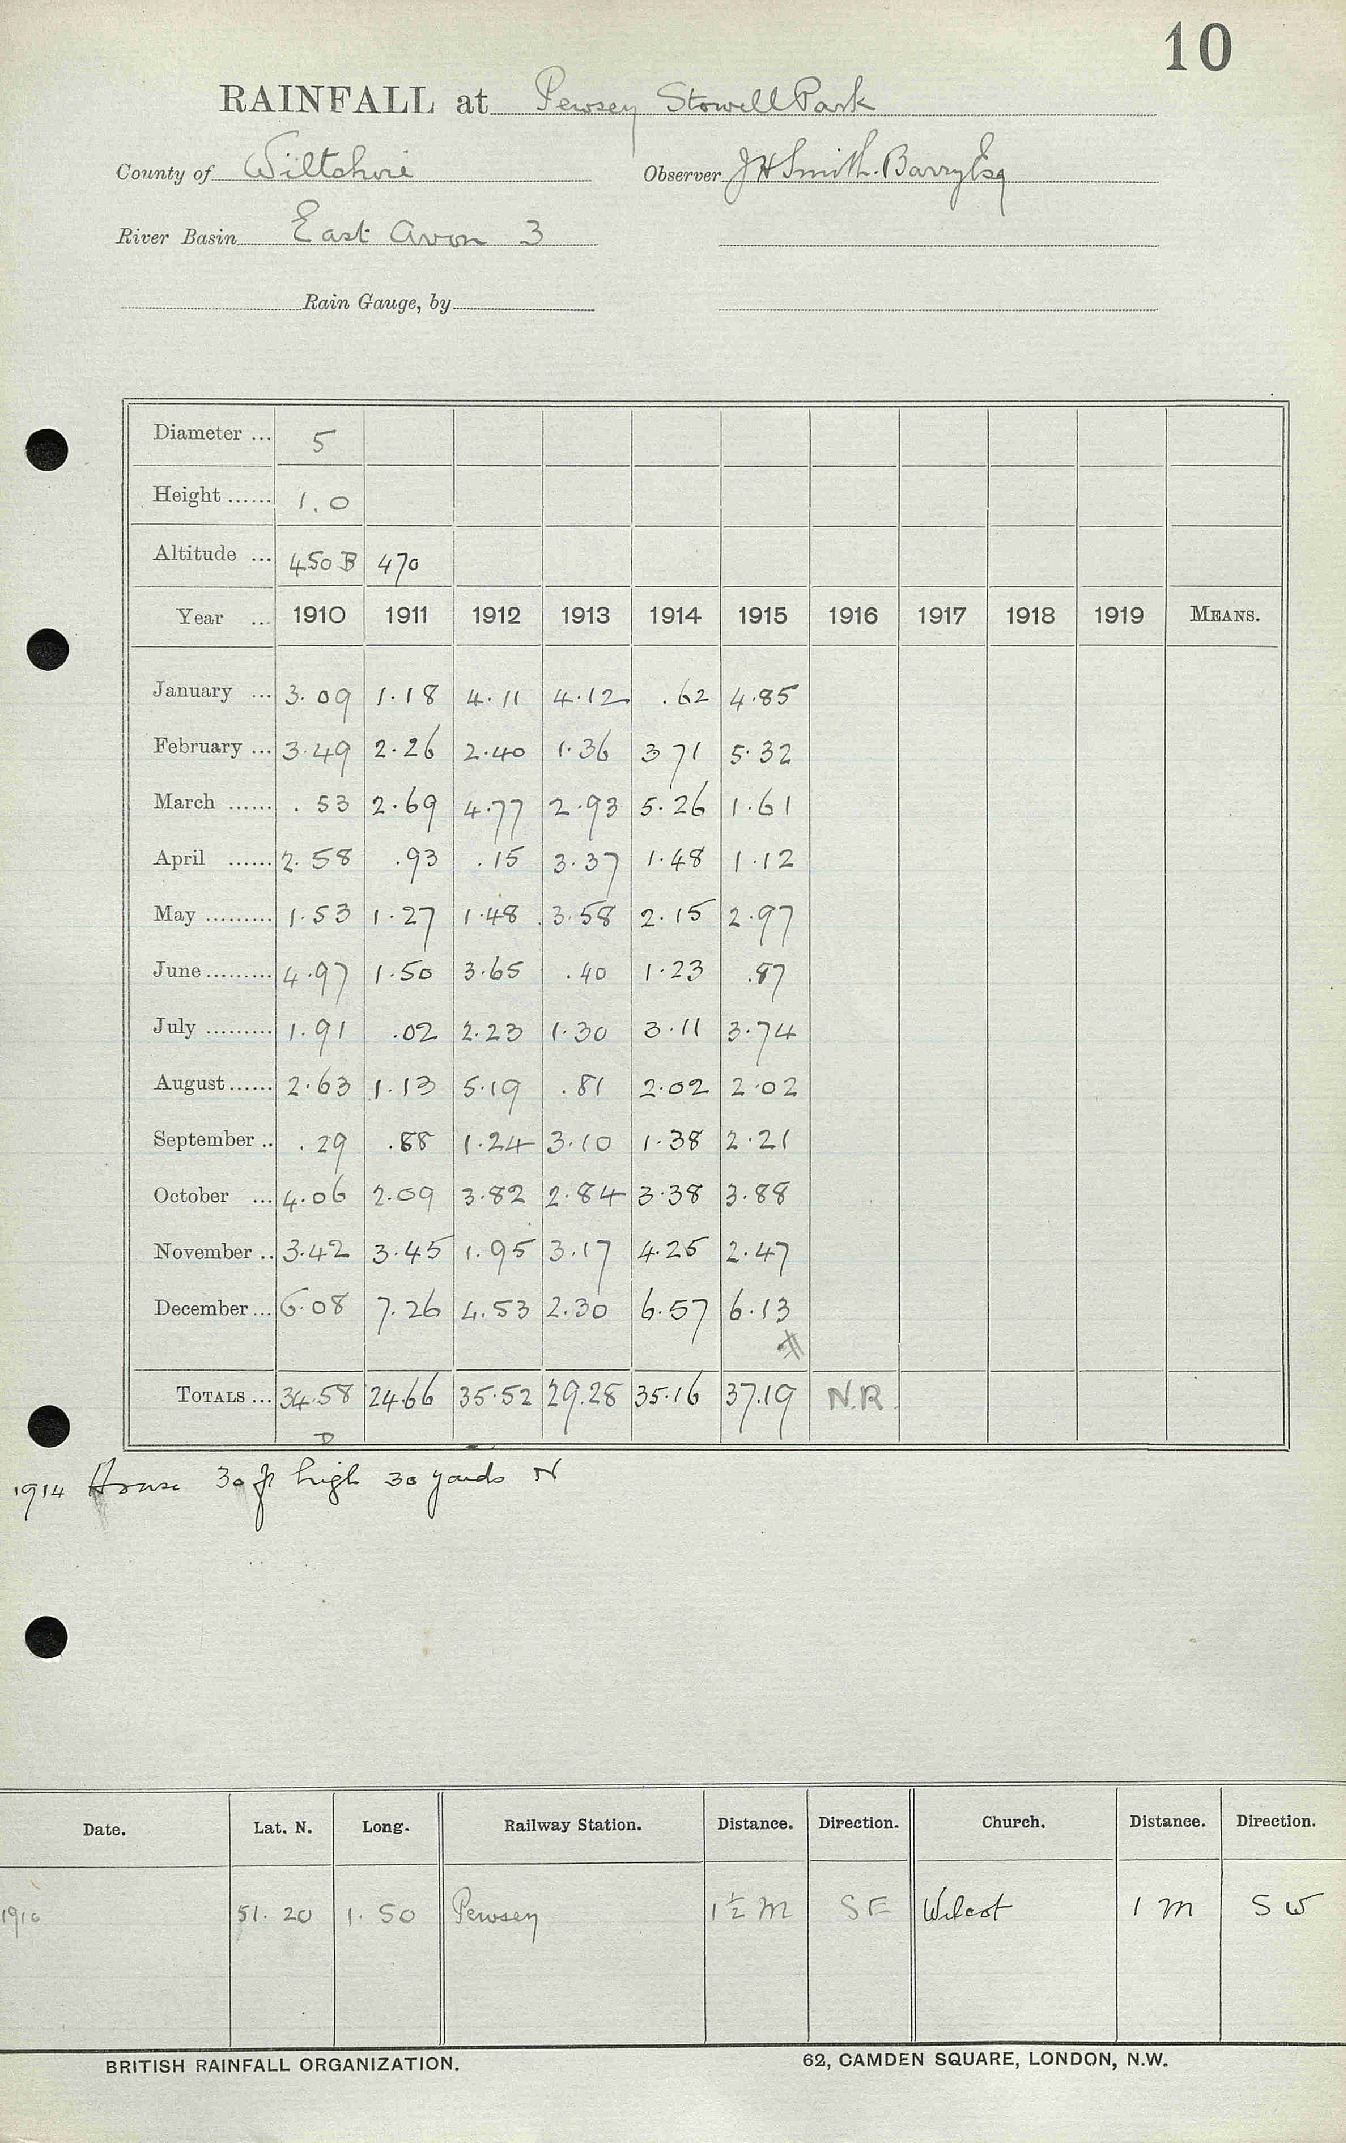 10
RAINFALL at Pewsey Stowell Park
County of Wiltshire Observer J H Smith-Barry Esq
River Basin East Avon 3
Rain Gauge, by
Diameter ... 5
Height ...... 1.0
Altitude ... 450 B 470
Year ... 1910 1911 1912 1913 1914 1915 1916 1917 1918 1919 MEANS.
January ... 3.09 1.18 4.11 4.12 .62 4.85
February ... 3.49 2.26 2.40 1.36 3 71 5.32
March ...... .53 2.69 4.77 2.93 5.26 1.61
April ...... 2.58 .93 .15 3.37 1.48 1.12
May ......... 1.53 1.27 1.48 3.58 2.15 2.97
June ......... 4.97 1.50 3.65 .40 1.23 .87
July ......... 1.91 .02 2.23 1.30 3.11 3.74
August ...... 2.63 1.13 5.19 .81 2.02 2.02
September .. .29 .88 1.24 3.10 1.38 2.21
October ... 4.06 2.09 3.82 2.84 3.38 3.88
November .. 3.42 3.45 1.95 3.17 4.25 2.47
December ... 6.08 7.26 4.53 2.30 6.57 6.13
#
TOTALS ... 34.58 24.66 35.52 29.28 35.16 37.19 N.R.
D
1914 House 30 ft high 30 yards N
Date. Lat. N. Long. Railway Station. Distance. Direction. Church. Distance. Direction.
1910 51. 20 1. 50 Pewsey 1½ M SE Wilcot 1 M SW
BRITISH RAINFALL ORGANIZATION. 62, CAMDEN SQUARE, LONDON, N.W.